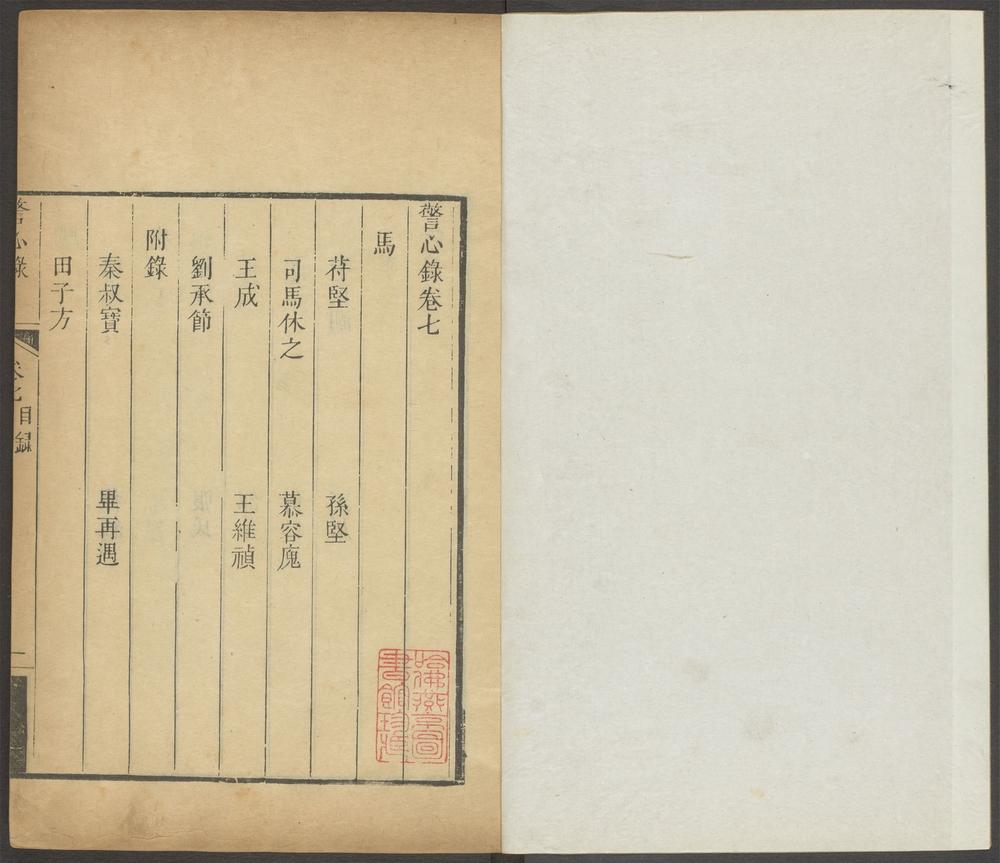 警心錄卷七
馬
苻堅　孫堅
司馬休之　慕容廆
王成　王維禎
劉承節
附錄
秦叔寶　畢再遇
田子方
警心錄　卷七目錄　一
哈佛燕京圖書館珍藏